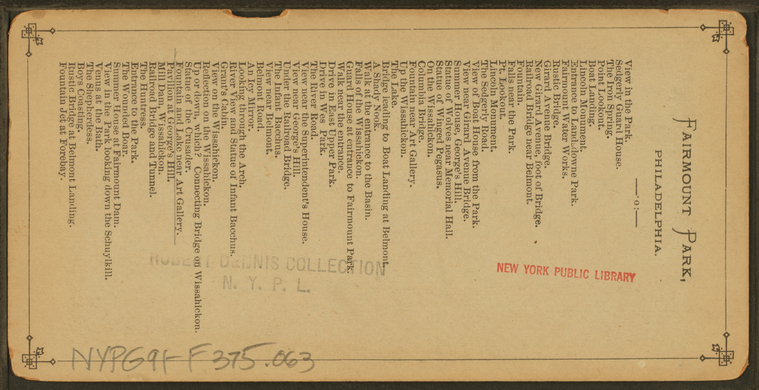 FAIRMOUNT PARK,
PHILADELPHIA.
—:o:—
View in the Park.
Sedgerly Guard House.
The Iron Spring.
Point Lookout.
Boat Landing.
Lincoln Monument.
Entrance to Landsdowne Park.
Fairmount Water Works.
Rustic Bridge.
Girard Avenue Bridge.
New Girard Avenue, foot of Bridge.
Railroad Bridge near Belmont.
Fountain.
Falls near the Park.
Pt. Lookout.
Lincoln Monument.
The Sedgerly Road.
View of Boat House from the Park.
View near Girard Avenue Bridge.
Summer House, George's Hill.
Statue of Pegasus near Memorial Hall.
Statue of Winged Pegasus.
On the Wissahickon.
Columbia Bridge.
Fountain near Art Gallery.
Up the Wissahickon.
The Lake.
Bridge leading to Boat Landing at Belmont.
A Shady Nook.
Walk at the entrance to the Basin.
Falls of the Wissahickon.
Gravel House at entrance to Fairmount Park.
Walk near the entrance.
Drive in East Upper Park.
Drive in West Park.
The River Road.
View near the Superintendent's House.
View near George's Hill.
Under the Railroad Bridge.
The Infant Bacchus.
View near Belmont.
Belmont Road.
An Icy Mirror.
Looking through the Arch.
River View and Statue of Infant Bacchus.
Grant's Cabin.
View on the Wissahickon.
Reflection on the Wissahickon.
Up or down, which? Connecting Bridge on Wissahickon.
Statue of the Crusader.
Fountain and Lake near Art Gallery.
Pavilion at George's Hill.
Mill Dam, Wissahickon.
Railroad Bridge and Tunnel.
The Fountain.
Entrance to the Park.
The Wounded Boar.
Summer House at Fairmount Dam.
View in the Park looking down the Schuylkill.
Venus at the Bath.
The Shepherdess.
Boys Coasting.
Rustic Bridge at Belmont Landing.
Fountain Jet at Forebay.
NEW YORK PUBLIC LIBRARY
ROBERT DENNIS COLLECTION
N. Y. P. L.
NYPG91-F375.063